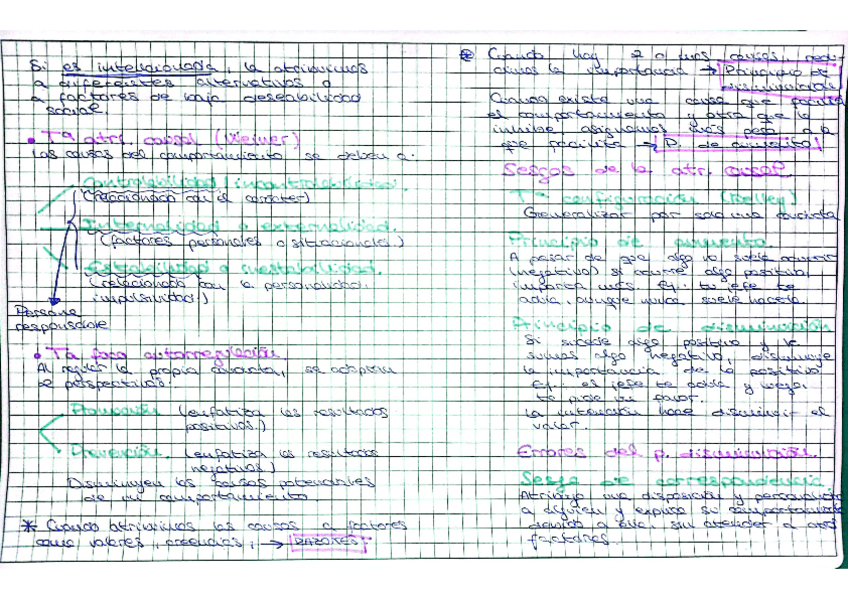 Si es intencionada, la atribuimos
a diferentes alternativas o
a factores de baja deseabilidad
social.
• Tª atr. causal (Weiner)
Las causas del comportamiento se deben a:
Controlabilidad / incontrolabilidad.
(relacionado con el carácter)
Internalidad o externalidad.
(factores personales o situacionales.)
Estabilidad o inestabilidad.
(relacionado con la personalidad.
impulsividad.)
Persona
responsable
• Tª foco autorregulación.
Al regular la propia conducta, se adoptan
2 perspectivas:
Promoción (enfatiza los resultados
positivos.)
Prevención. (enfatiza los resultados
negativos)
Disminuyen las causas
de mi comportamiento.
* Cuando atribuimos las causas a factores
como valores, creencias, → RAZONES.
* Cuando hay 2 o mas causas, redu-
cimos la importancia → Principio de
disminución
Cuando existe una causa que facilita
el comportamiento y otra que lo
inhibe, asignamos más peso a la
que facilita → P. de aumento
Sesgos de la atr. causal
Tª configuración (Kelley)
Generalizar por solo una conducta
Principio de aumento.
A pesar de que algo no suele ocurrir
(negativo) si ocurre algo positivo,
importa más. Ej.: tu jefe te
, aunque nunca suele hacerlo.
Principio de disminución
Si sucede algo positivo y le
sumas algo negativo, disminuye
la importancia de lo positivo
Ej.: el jefe te y luego
te pide un favor.
La intención hace disminuir el
valor.
Errores del p. disminución.
Sesgo de correspondencia
Atribuyo una disposición y personalidad
a alguien y expreso su comportamiento
debido a ella, sin atender a otros
factores.